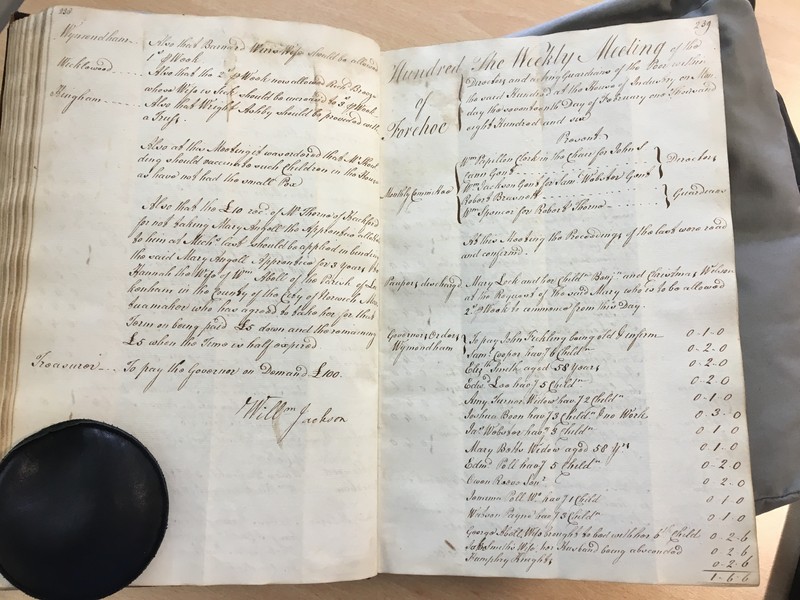 238
Wymondham Also that Barnard Wins Wife should be allowed
1s P Week
Wicklewood Also that the 2s P Week now allowed Richd
whose Wife is Sick should be increased to 3s P Week
Kingham Also that Wright Ashby should be provided with
a Truss.
Also at this Meeting it was ordered that Mr
ding should vaccinate such Children in the House
as have not had the small Pox
Also that the £10 recd of Mr Thorne of
for not taking Mary Angell the Apprentice allotted
to him at Michs last should be applied in binding
the said Mary Angell Apprentice for 3 Years to
Hannah the Wife of Wm Aboll of the Parish of La
kenham in the County of the City of Norwich Man
tuamaker who has agreed to take her for that
Term on being paid £5 down and the remaining
£5 when the Time is half expired
Treasurer To pay the Governor on Demand £100.
Willm Jackson
239
Hundred of Forehoe
The Weekly Meeting of the
Directors and acting Guardians of the Poor within
the said Hundred at the House of Industry on Mon
day the seventeenth Day of February one Thousand
eight Hundred and six
Present
Monthly Committee
Wm Papillon Clerk in the Chair for John S
Cann Gent
Wm Jackson Gent for Saml Webster Gent
Directors
Robert Brasnett
Wm Spencer for Robert Thorne
Guardians
At this Meeting the Proceedings of the last were read
and confirmed.
Paupers discharged Mary Lock and her Childn Benjn and Christmas Wilson
at the Request of the said Mary who is to be allowed
2s P Week to commence from this Day.
Governor Orders
Wymondham
To pay John Fickling being old & infirm 0-1-0
Saml Cooper havg 6 Childn 0-2-0
Elizth Smith aged 58 Years 0-2-0
Edwd Lee havg 5 Childn 0-2-0
Amy Turner Widow havg 2 Childn 0-1-0
Joshua Boon havg 3 Childn & no Work 0-3-0
Jas Webster havg 3 Childn 0 1-0
Mary Betts Widow aged 58 Yrs 0-1-0
Edmd Poll havg 5 Childn 0-2-0
Owen Reeve Senr 0 2-0
Jemima Poll Wo havg 1 Child 0 1 0
Watson Payne havg 3 Childn 0 1-0
George Aboll, Wife brought to bed with her 6th Child 0-2-6
Smiths Wife, her Husband being absconded 0 2 6
Humphry Knights 0-2-6
1-6-6